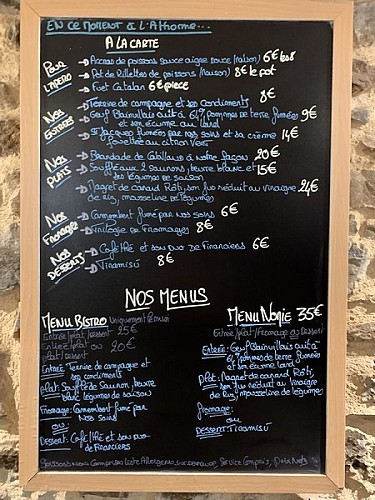 EN CE MOMENT à L'Athome...
A LA CARTE
POUR L'APERO
→ Accras de poissons sauce aigre douce (maison) 6€ les 8
→ Pot de Rillettes de poissons (maison) 8€ le pot
→ Fuet Catalan 6€ piece
NOS ENTREES
→ Terrine de campagne et son Condiments 8€
→ Oeuf Blainvillais cuit à 64°, pommes de terre fumées et son écume au lard 9€
→ St Jacques fumées par nos soins et sa crème fouettée au citron vert 14€
NOS PLATS
→ Brandade de Cabillaud à notre façon 20€
→ Soufflé aux 2 saumons, beurre blanc et légumes de saison 15€
→ Magret de canard Rôti, son jus réduit au vinaigre de riz, mousseline de légumes 24€
NOS FROMAGES
→ Camembert fumé par nos soins 6€
→ Trilogie de Fromages 8€
NOS DESSERTS
→ Café/thé et son duo de Financiers 6€
→ Tiramisu 8€
NOS MENUS
MENU BISTRO uniquement le midi
Entrée/plat/dessert 25€
Entrée/plat ou plat/dessert 20€
Entrée: Terrine de campagne et son condiments
plat: Soufflé de Saumon, beurre blanc légumes de saison
Fromage: Camembert fumé par nos soins
ou
Dessert: Café/thé et son duo de financiers
MENU NOMIE 35€
Entrée/plat/Fromage ou Dessert
Entrée: Oeuf Blainvillais cuit à 64°, pommes de terre fumées et son écume lard
Plat: Magret de canard Rôti, son jus réduit au vinaigre de riz, mousseline de légumes
Fromage:
ou
DESSERT: Tiramisu
Boissons non Comprises, Liste Allergènes sur demande, Service Compris, Prix Nets